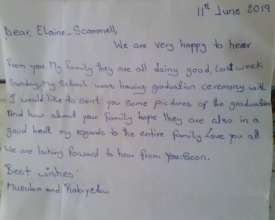 11th June 2019
Dear, Elaine_Scammell,
We are very happy to hear
From you My family they are all doing good, Last week
Sunday My School was having graduation ceremony with
I would like to sent you some pictures of the graduation
And how about your family hope they are also in a
good healt my regards to the entire family Love you all
We are looking forward to hear from You Soon.
Best wishes
and